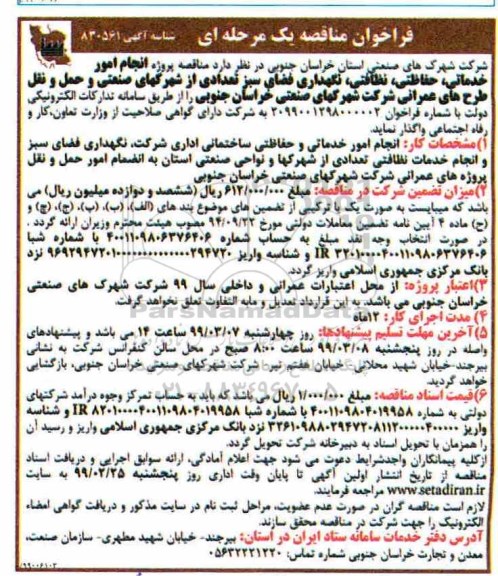 فراخوان مناقصه یک مرحله ای
شناسه آگهی ۸۳۰۵۶۱
شرکت شهرک های صنعتی استان خراسان جنوبی در نظر دارد مناقصه پروژه انجام امور
خدماتی، حفاظتی، نظافتی، نگهداری فضای سبز تعدادی از شهرکهای صنعتی و حمل و نقل
طرح های عمرانی شرکت شهرکهای صنعتی خراسان جنوبی را از طریق سامانه تدارکات الکترونیکی
دولت با شماره فراخوان ۳۰۹۹۰۰۱۲۹۸۰۰۰۰۰۲ به شرکت دارای گواهی صلاحیت از وزارت تعاون،کار و
رفاه اجتماعی واگذار نماید.
۱)مشخصات کار: انجام امور خدماتی و حفاظتی ساختمانی اداری شرکت، نگهداری فضای سبز
و انجام خدمات نظافتی تعدادی از شهرکها و نواحی صنعتی استان به انضمام امور حمل و نقل
پروژه های عمرانی شرکت شهرکهای صنعتی خراسان جنوبی
۲)میزان تضمین شرکت در مناقصه: مبلغ ۶۱۲/۰۰۰/۰۰۰ ریال (ششصد و دوازده میلیون ریال) می
باشد که میبایست به صورت یک یا ترکیبی از تضمین های موضوع بند های (الف)، (ب)، (پ)، (ج)، (چ) و
(ح) ماده ۴ آیین نامه تضمین معاملات دولتی مورخ ۹۴/۰۹/۲۲ مصوب هیئت محترم وزیران ارائه گردد .
در صورت انتخاب وجه نقد مبلغ به حساب شماره ۴۰۰۱۱۰۹۸۰۶۳۷۶۴۰۶ با شماره شبا
نزد
بانک مرکزی جمهوری اسلامی واریز گردد.
۳)اعتبار پروژه: از محل اعتبارات عمرانی و داخلی سال ۹۹ شرکت شهرک های صنعتی
خراسان جنوبی می باشد. به این قرارداد تعدیل و مابه التفاوت تعلق نخواهد گرفت.
۴) مدت اجرای کار: ۱۲ماه
۵)آخرین مهلت تسلیم پیشنهادها: روز چهارشنبه ۹۹/۰۳/۰۷ ساعت ۱۴ می باشد و پیشنهادهای
واصله در روز پنجشنبه ۹۹/۰۳/۰۸ ساعت ۸:۰۰ صبح در محل سالن کنفرانس شرکت به نشانی
بیرجند-خیابان شهید محلاتی-خیابان هفتم تیر- شرکت شهرک های صنعتی خراسان جنوبی، بازگشایی
خواهد گردید.
۶)قیمت اسناد مناقصه: مبلغ ۱/۰۰۰/۰۰۰ ریال می باشد که باید به حساب تمرکز وجوه درآمد شرکتهای
دولتی به شماره ۴۰۰۱۱۰۹۸۰۴۰۱۹۹۵۸ با شماره شبا و شناسه
واریز نزد بانک مرکزی جمهوری اسلامی واریز و رسید آن
را همزمان با تحویل اسناد به دبیرخانه شرکت تحویل گردد.
ازکلیه پیمانکاران واجدشرایط دعوت می شود جهت اعلام آمادگی، ارائه سوابق اجرایی و دریافت اسناد
مناقصه از تاریخ انتشار اولین آگهی تا پایان وقت اداری روز پنجشنبه ۹۹/۰۲/۲۵ به سایت
www.setadiran.ir مراجعه فرمایند.
لازم است مناقصه گران در صورت عدم عضویت، مراحل ثبت نام در سایت مذکور و دریافت گواهی امضاء
الکترونیک را جهت شرکت در مناقصه محقق سازند.
آدرس دفتر خدمات سامانه ستاد ایران در استان: بیرجند- خیابان شهید مطهری- سازمان صنعت،
معدن و تجارت خراسان جنوبی شماره تماس: ۰۵۶۳۲۲۲۱۲۲۰